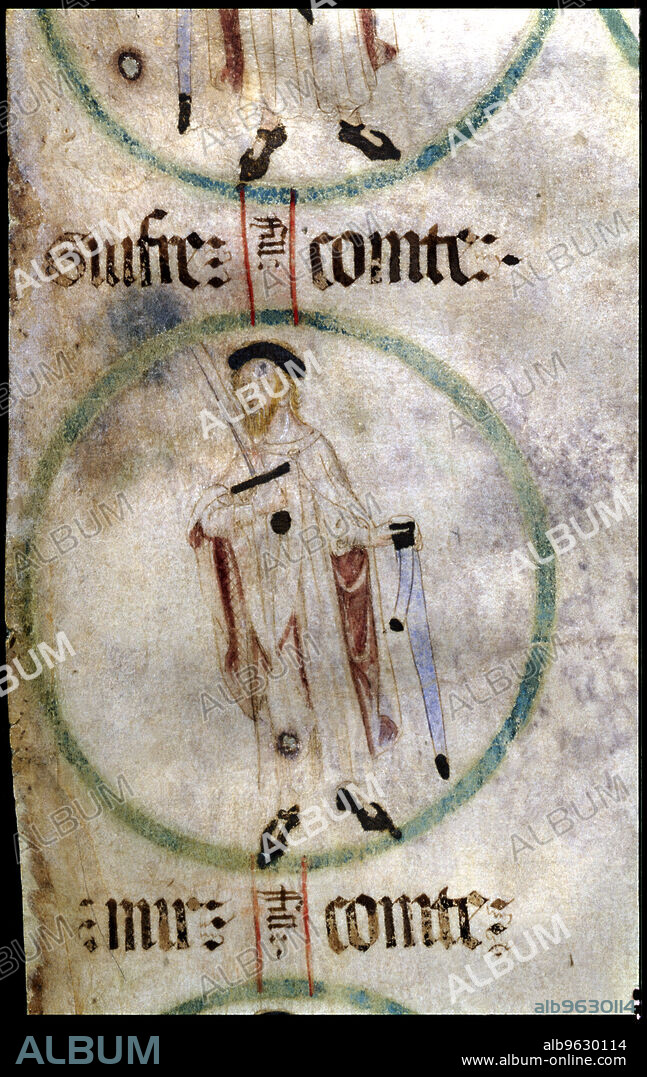 Guifre: fill: comte:
mir: fill: comte:
alb9630114
ALBUM
alb9630114
www.album-online.com